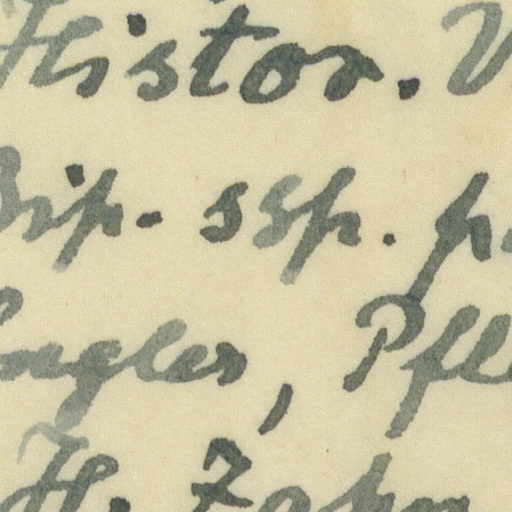 Histor.
Bip. ssp.
Engler, Pfl
H. Zahn